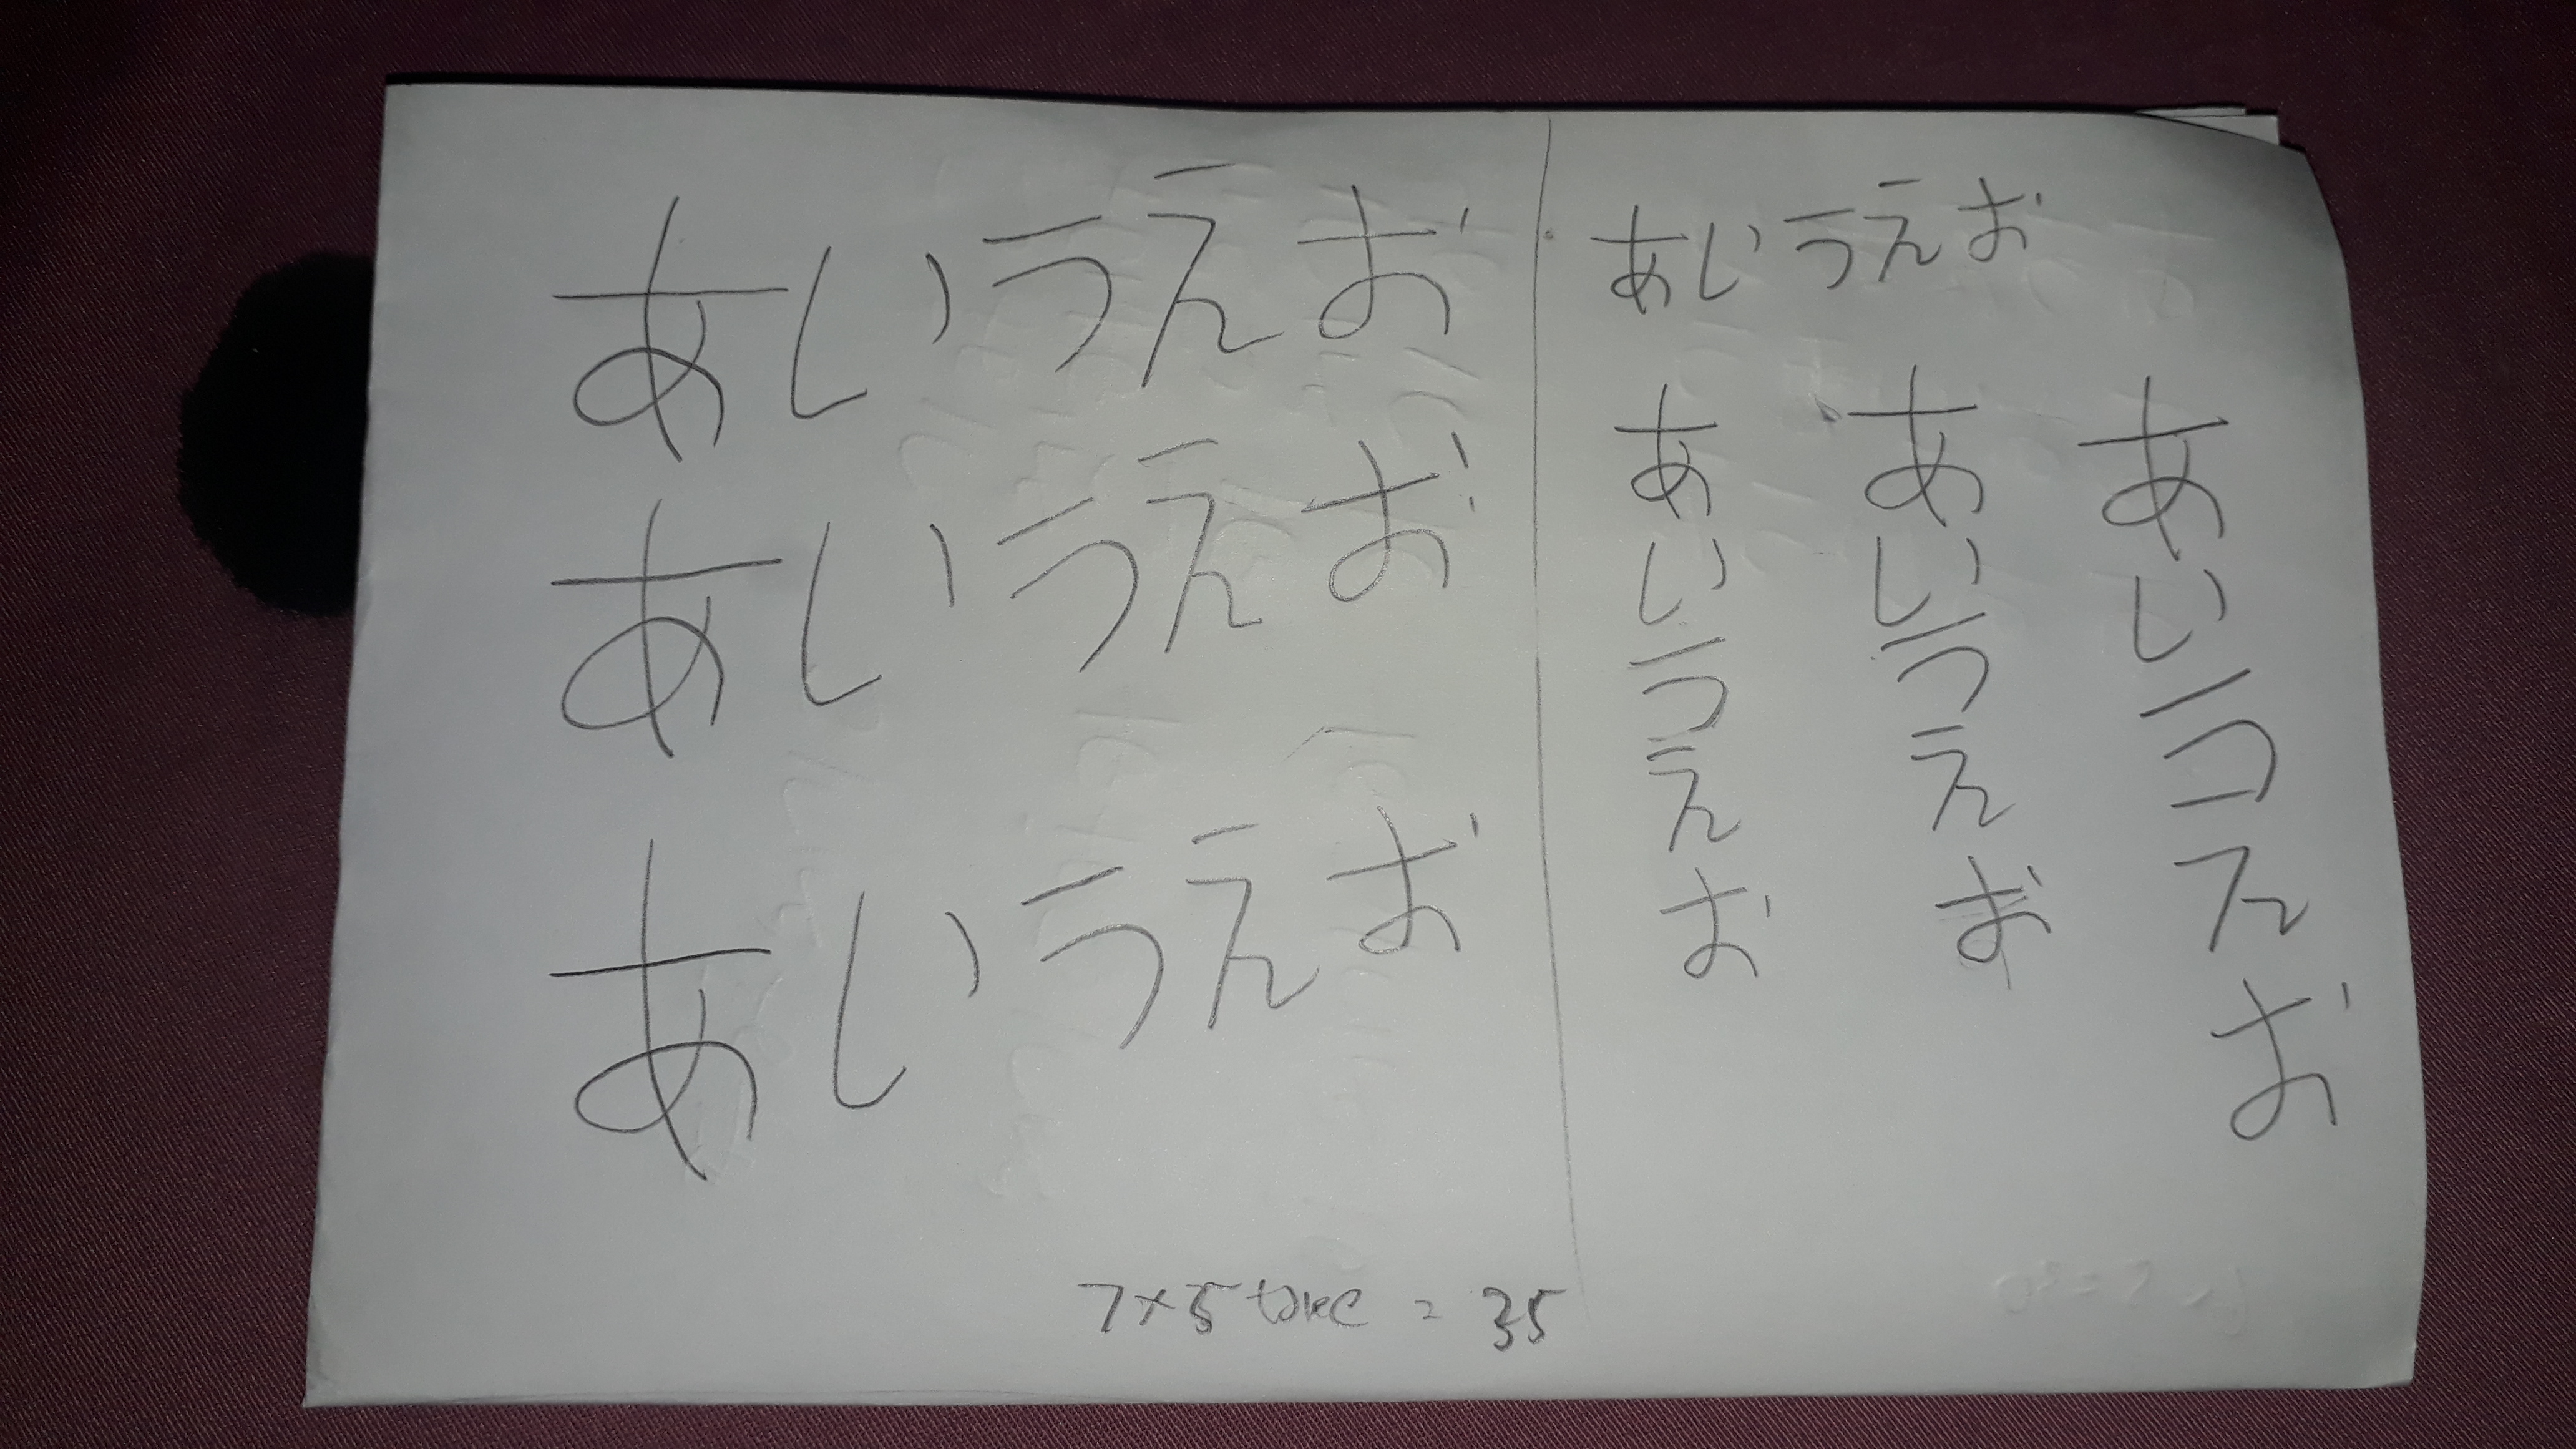 あいうえお
あいうえお
あいうえお
あいうえお
あいうえお
あいうえお
あいうえお
7×5 = 35